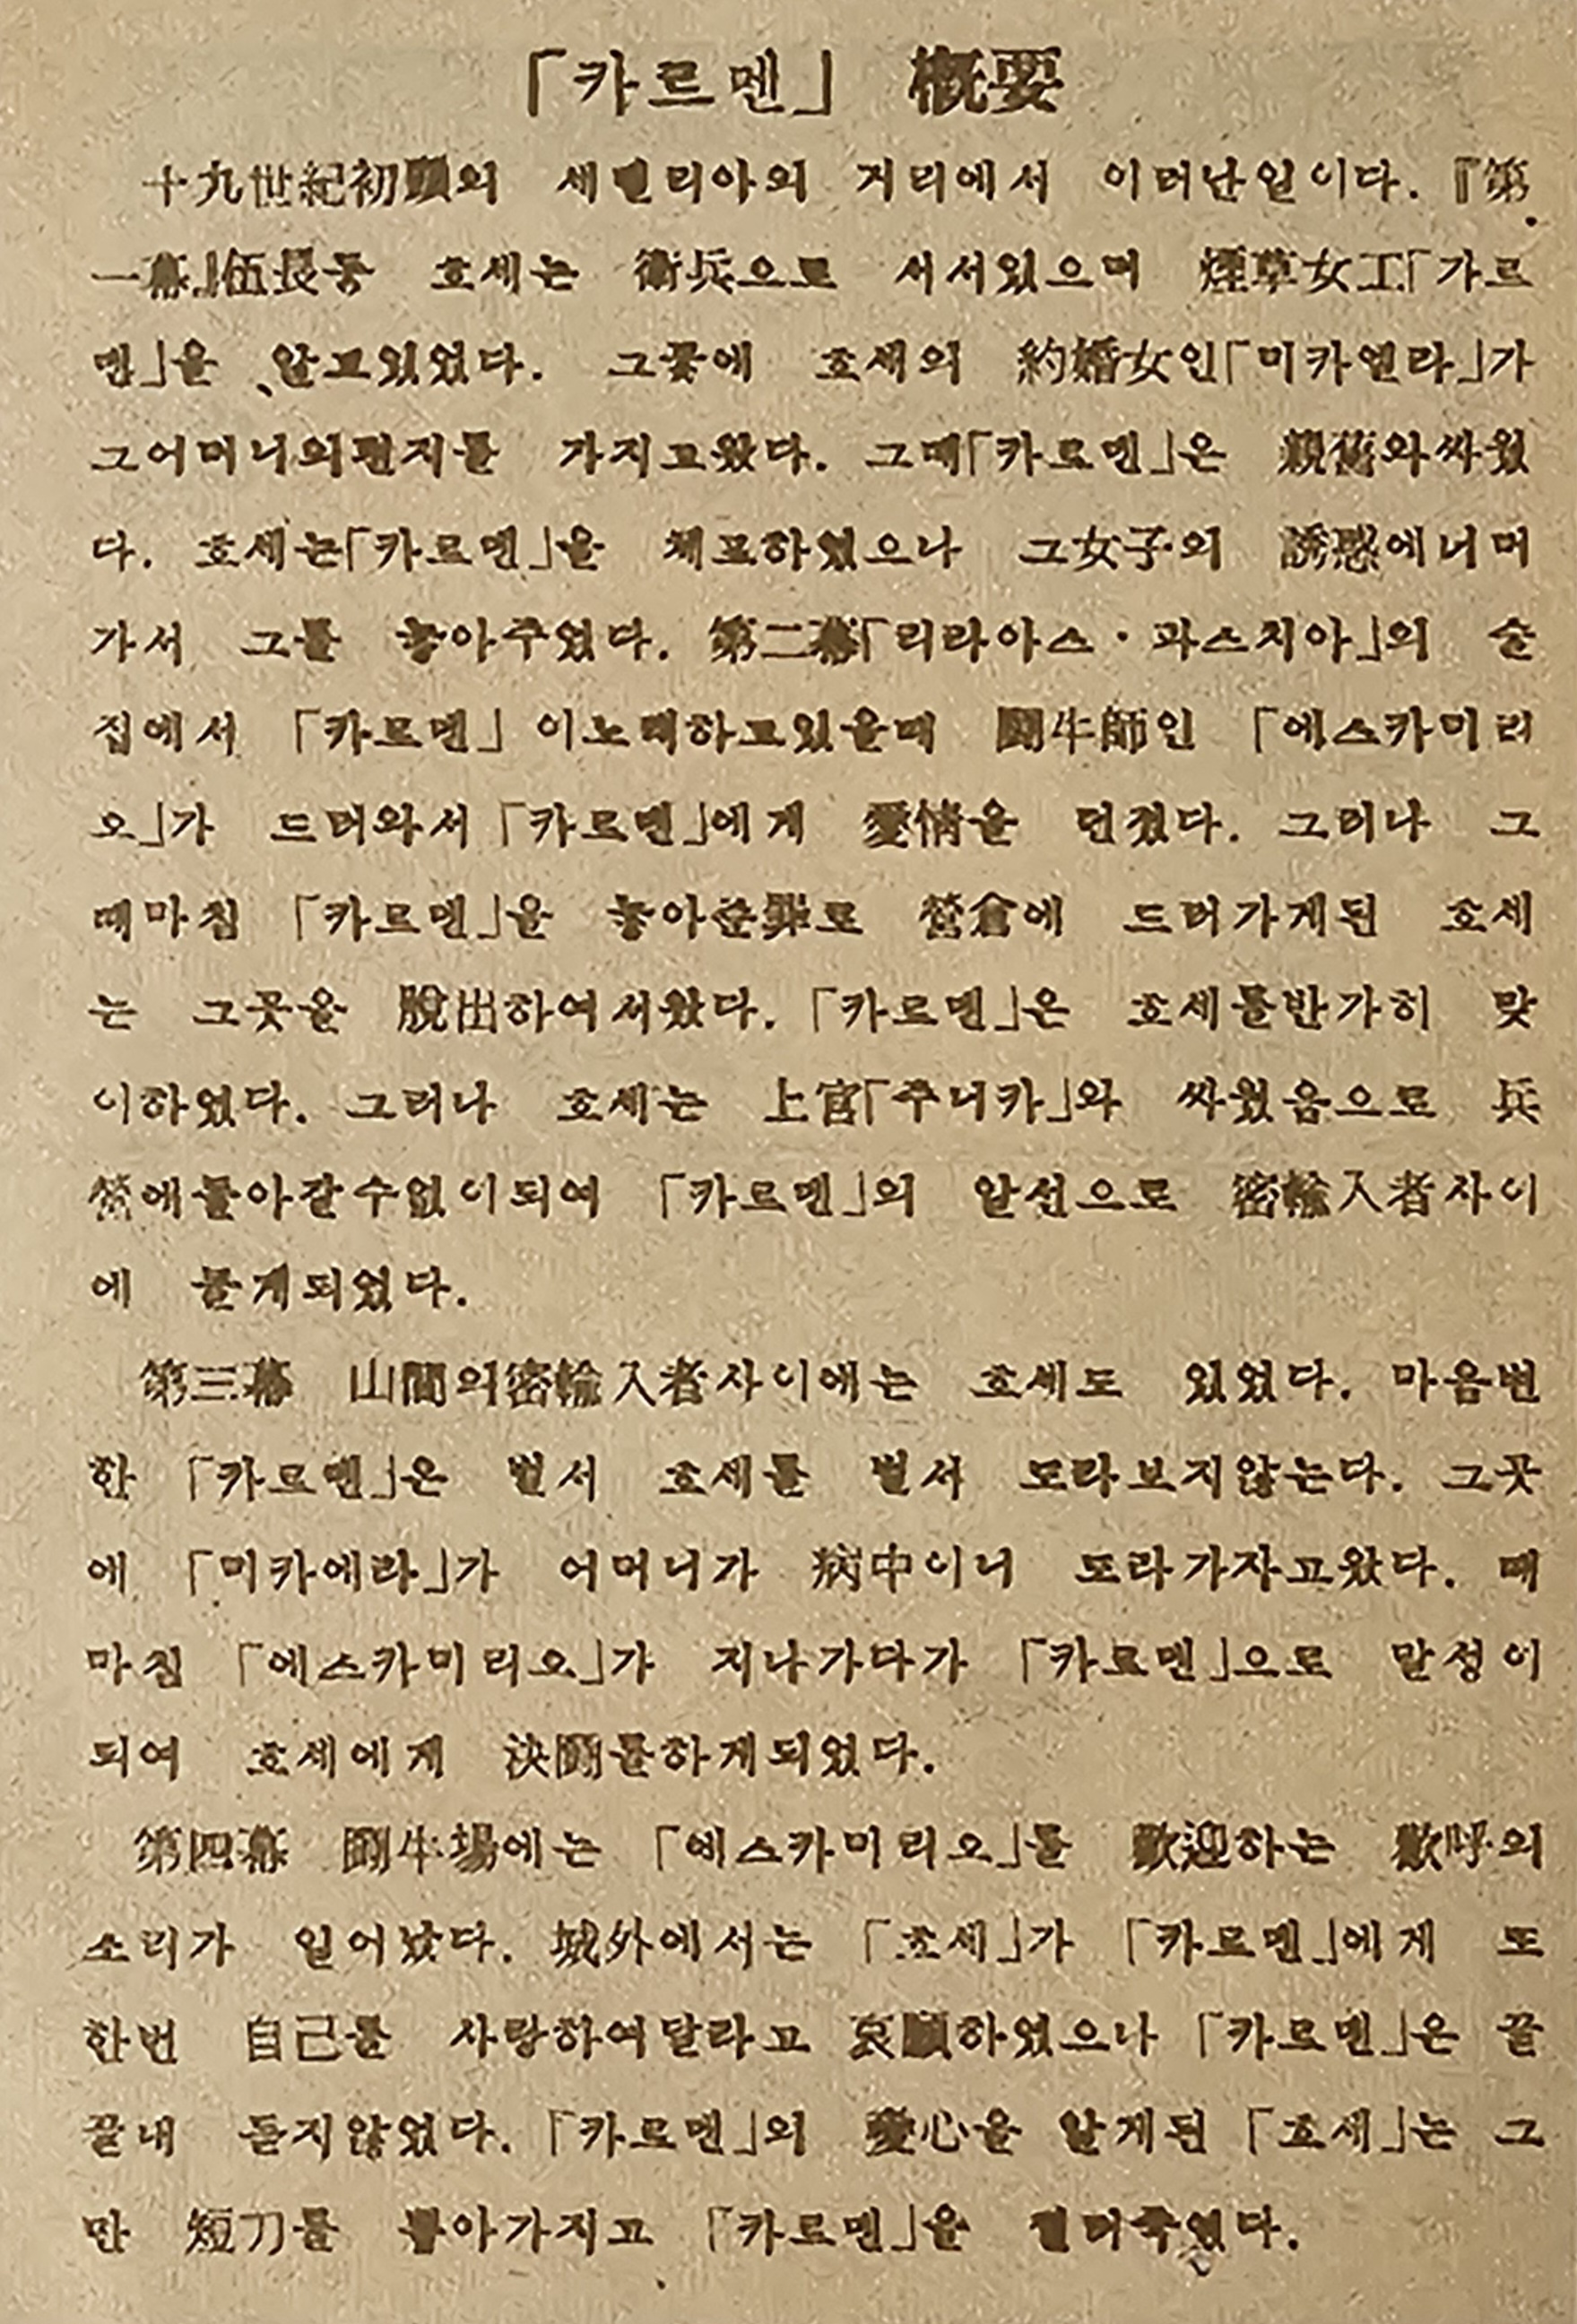 「카르멘」 槪要
十九世紀初頭의 세빌리아의 거리에서 이러난일이다. 『第
一幕』伍長동 호세는 衛兵으로 서서있으며 煙草女工「가르
멘」을 알고있었다. 그곳에 호세의 約婚女인「미카엘라」가
그어머니의편지를 가지고왔다. 그때「카르멘」은 親舊와싸웠
다. 호세는「카르멘」을 체포하였으나 그女子의 誘惑에너머
가서 그를 놓아주었다. 第二幕「리라아스·과스치아」의 술
집에서 「카르멘」 이노래하고있을때 鬪牛師인 「에스카미리
오」가 드러와서「카르멘」에게 愛情을 던졌다. 그러나 그
때마침 「카르멘」을 놓아준罪로 營倉에 드러가게된 호세
는 그곳을 脫出하여서왔다. 「카르멘」은 호세를반가히 맞
이하였다. 그러나 호세는 上官「주니카」와 싸웠음으로 兵
營에돌아갈수없이되여 「카르멘」의 알선으로 密輸入者사이
에 몰게되었다.
第三幕 山間의密輸入者사이에는 호세도 있었다. 마음변
한 「카르멘」은 벌서 호세를 벌서 도라보지않는다. 그곳
에 「미카에라」가 어머니가 病中이니 도라가자고왔다. 때
마침 「에스카미리오」가 지나가다가 「카르멘」으로 말성이
되여 호세에게 決鬪를하게되었다.
第四幕 鬪牛場에는 「에스카미리오」를 歡迎하는 歡呼의
소리가 일어났다. 城外에서는 「호세」가 「카르멘」에게 또
한번 自己를 사랑하여달라고 哀願하였으나 「카르멘」은 끝
끝내 듣지않었다. 「카르멘」의 變心을 알게된 「호세」는 그
만 短刀를 뽑아가지고 「카르멘」을 찔러죽였다.